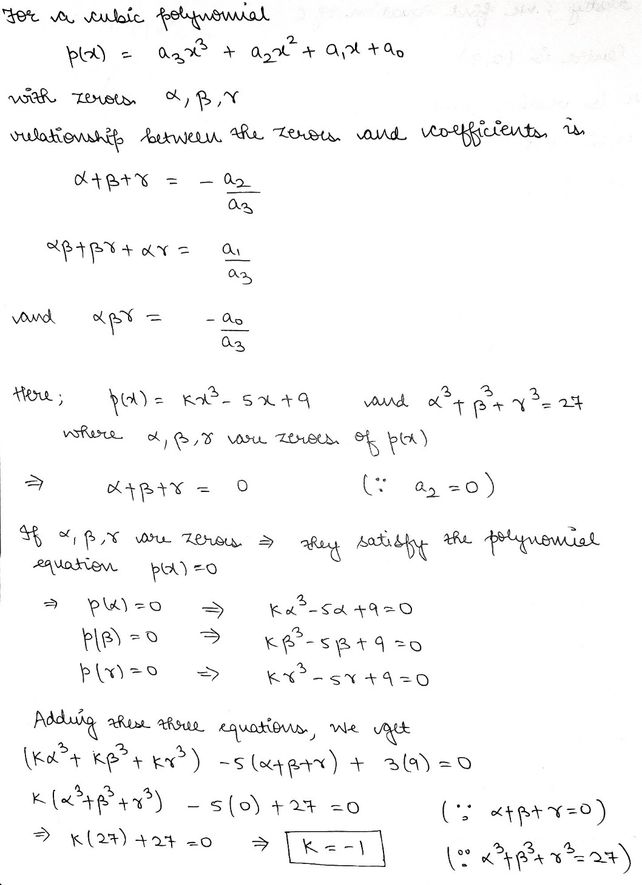 For a cubic polynomial
p(x) = a₃x³ + a₂x² + a₁x + a₀
with zeroes α, β, γ
relationship between the zeroes and coefficients is
α+β+γ = - a₂/a₃
αβ+βγ+αγ = a₁/a₃
and αβγ = -a₀/a₃
Here; p(x) = Kx³ - 5x + 9 and α³+ β³+ γ³ = 27
where α, β, γ are zeroes of p(x)
⇒ α+β+γ = 0 (∵ a₂ = 0)
If α, β, γ are zeroes ⇒ they satisfy the polynomial
equation p(x) = 0
⇒ p(α) = 0 ⇒ Kα³-5α+9=0
p(β) = 0 ⇒ Kβ³-5β+9=0
p(γ) = 0 ⇒ Kγ³-5γ+9=0
Adding these three equations, we get
(Kα³+ Kβ³+ Kγ³) -5(α+β+γ) + 3(9) = 0
K(α³+β³+γ³) - 5(0) + 27 = 0 (∵ α+β+γ=0)
⇒ K(27) + 27 = 0 ⇒ K = -1 (∵ α³+β³+γ³=27)